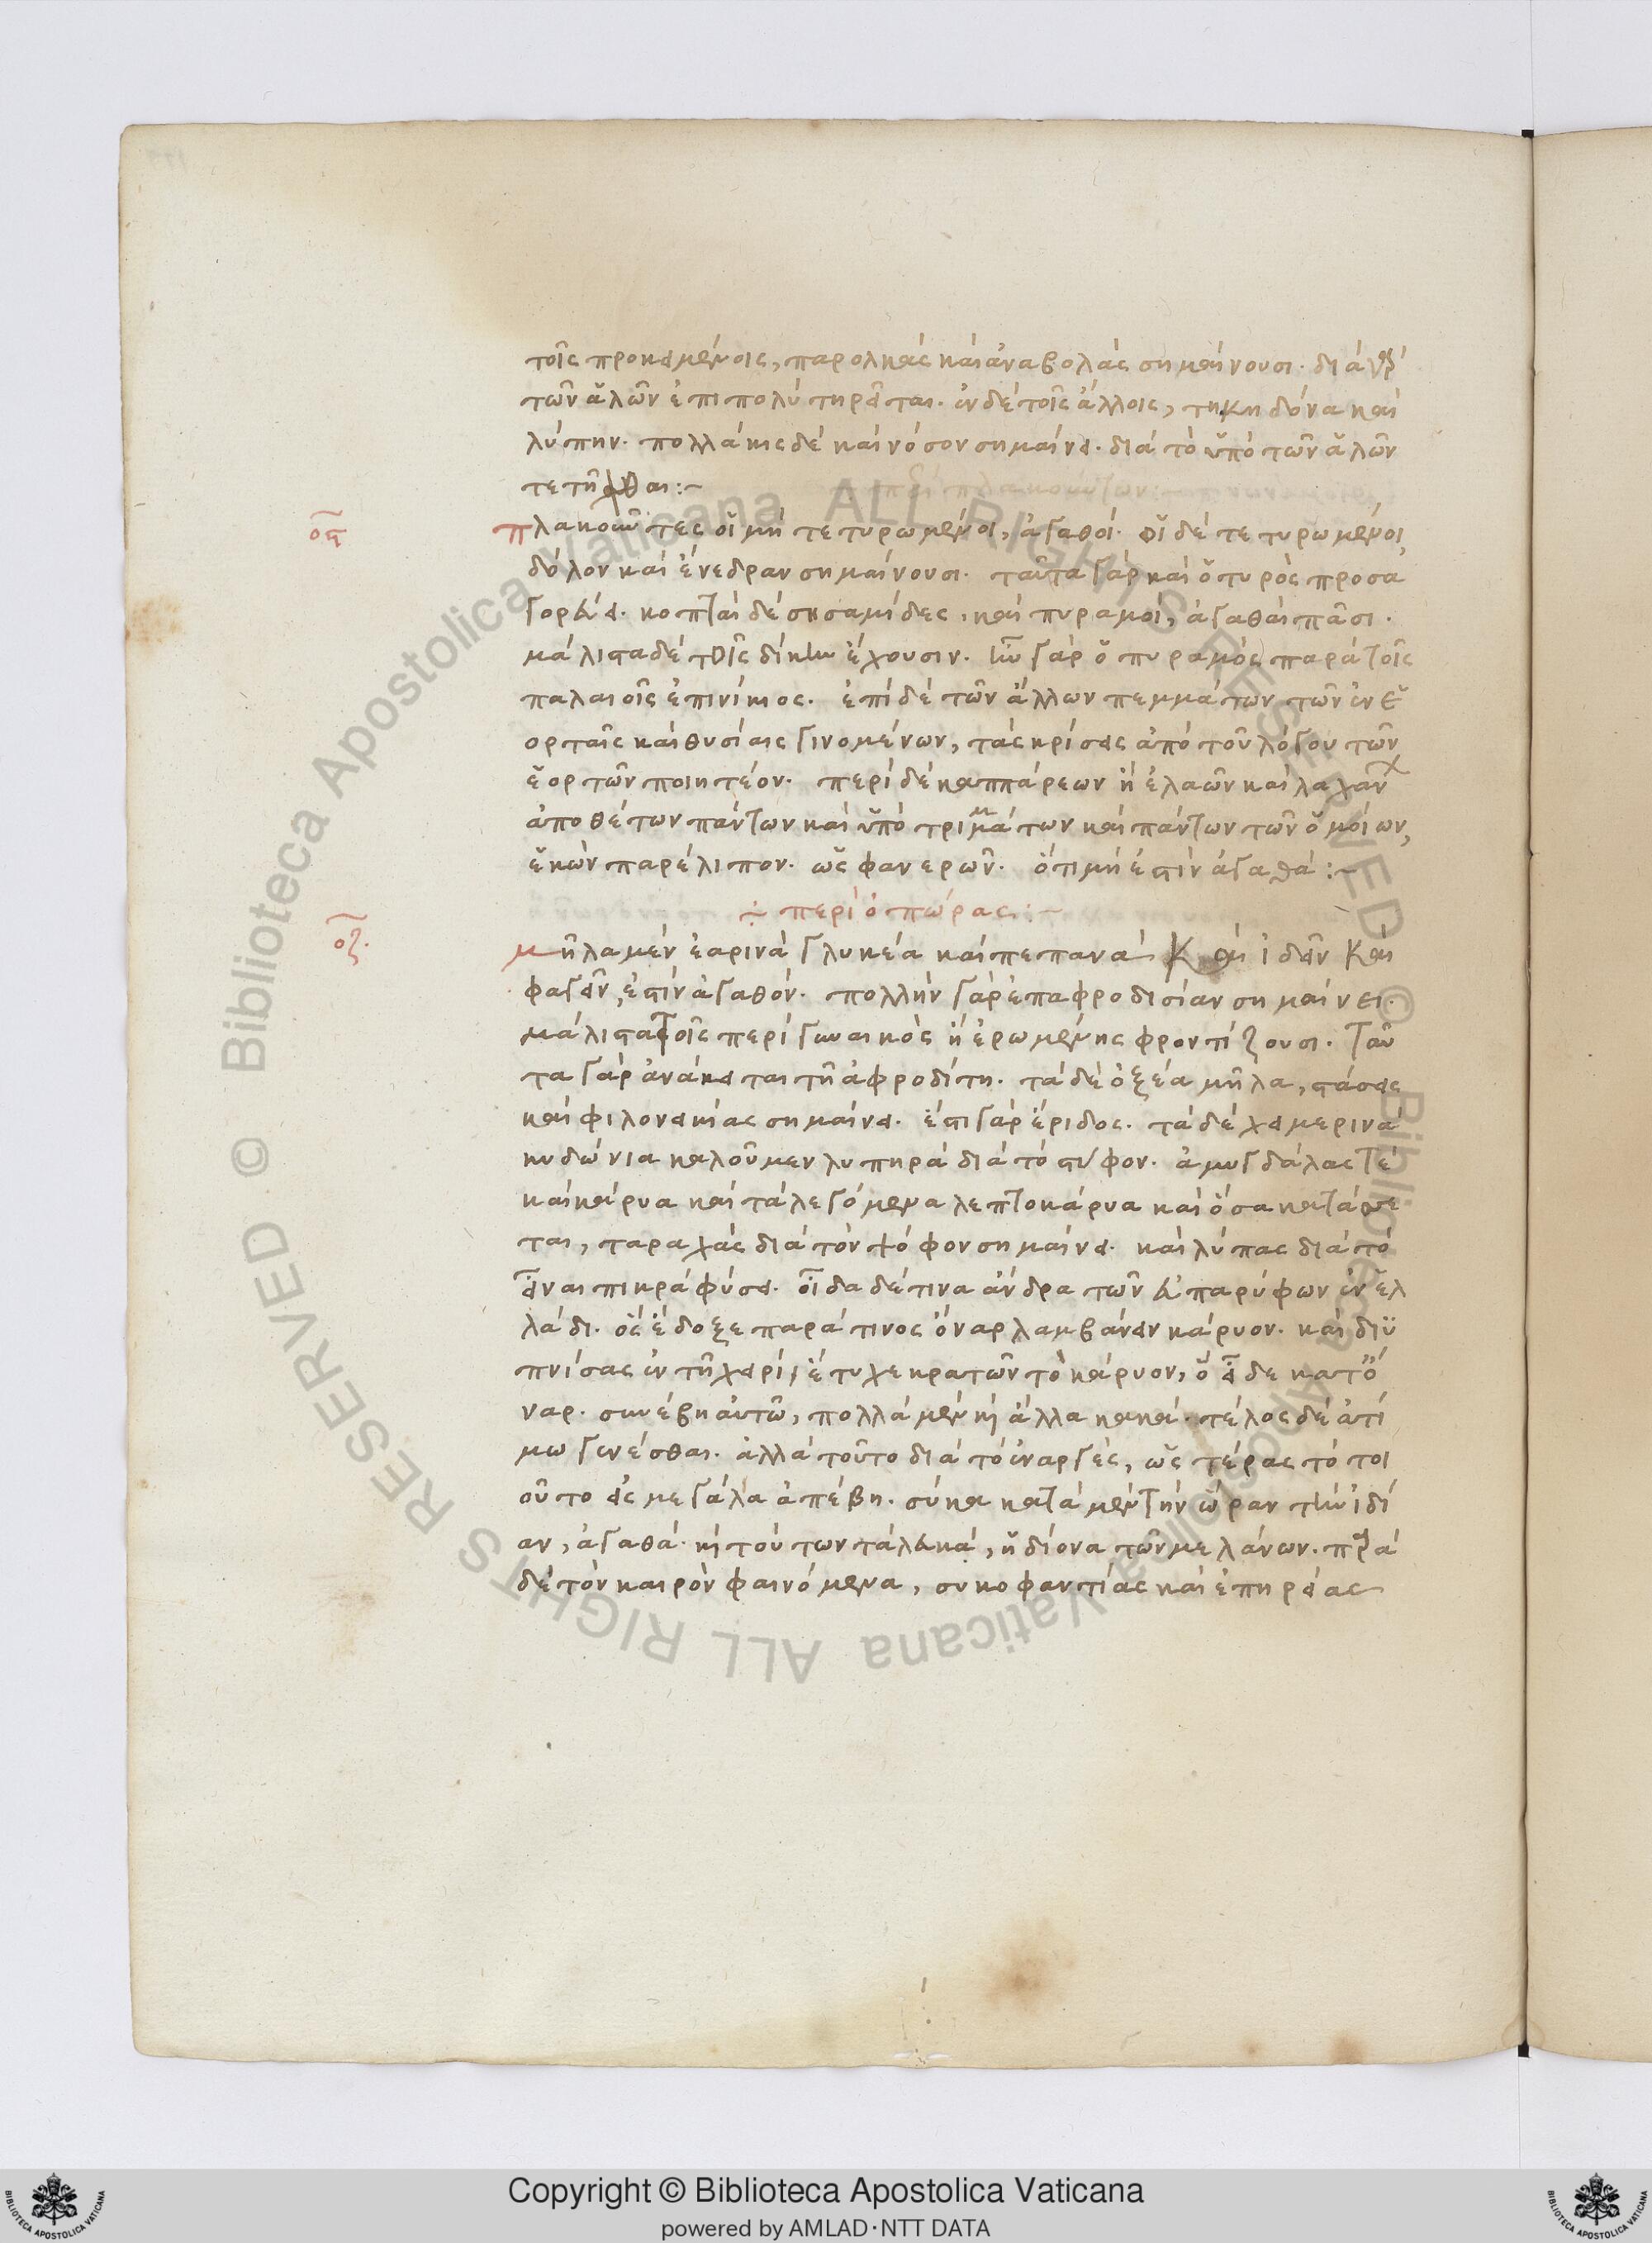 τοῖς προκειμένοις, παρολκὰς καὶ ἀναβολὰς σημαίνουσι. διὰ γὰρ
τῶν ἁλῶν ἐπιπολὺ τηρεῖται. ἐν δὲ τοῖς ἄλλοις, τηκηδόνα καὶ
λύπην. πολλάκις δὲ καὶ νόσον σημαίνει. διὰ τὸ ὑπὸ τῶν ἁλῶν
τετῆχθαι:~
ος πλακοῦντες οἱ μὴ τετυρωμένοι, ἀγαθοί. οἱ δὲ τετυρωμένοι,
δόλον καὶ ἔνεδραν σημαίνουσι. ταῦτα γὰρ καὶ ὁ τυρὸς προσα
γορεύει. κοπταὶ δὲ σησαμίδες, καὶ πυραμοὶ, ἀγαθαὶ πᾶσι.
μάλιστα δὲ τοῖς δίκην ἔχουσιν. ἦν γὰρ ὁ πυραμὸς παρὰ τοῖς
παλαιοῖς ἐπινίκιος. ἐπὶ δὲ τῶν ἄλλων πεμμάτων τῶν ἐν ἑ
ορταῖς καὶ θυσίαις γινομένων, τὰς κρίσεις ἀπὸ τοῦ λόγου τῶν
ἑορτῶν ποιητέον. περὶ δὲ καππάρεων ἢ ἐλαῶν καὶ λαχάν
ἀποθέτων πάντων καὶ ὑπὸ τριμμάτων καὶ πάντων τῶν ὁμοίων,
ἑκὼν παρέλιπον. ὡς φανερῶν. ὅτι μὴ ἐστὶν ἀγαθά:~
÷ περὶ ὀπώρας:~
οζ. μῆλα μὲν ἐαρινὰ γλυκέα καὶ πεπανὰ καὶ ἰδεῖν καὶ
φαγεῖν, ἐστὶν ἀγαθόν. πολλὴν γὰρ ἐπαφροδισίαν σημαίνει.
μάλιστα τοῖς περὶ γυναικὸς ἢ ἐρωμένης φροντίζουσι. ταῦ
τα γὰρ ἀνάκειται τῇ ἀφροδίτῃ. τὰ δὲ ὀξέα μῆλα, στάσεις
καὶ φιλονεικίας σημαίνει. ἔστι γὰρ ἔριδος. τὰ δὲ χειμερινὰ
κυδώνια καλοῦμεν λυπηρὰ διὰ τὸ στύφον. ἀμυγδάλας τὲ
καὶ κάρυα καὶ τὰ λεγόμενα λεπτοκάρυα καὶ ὅσα κατάγνυ
ται, ταραχὰς διὰ τὸν ψόφον σημαίνει. καὶ λύπας διὰ τὸ
εἶναι πικρὰ φύσει. οἶδα δέ τινα ἄνδρα τῶν εὐπαρύφων ἐν ἑλ
λάδι. ὃς ἔδοξε παρά τινος ὄναρ λαμβάνειν κάρυον. καὶ διυ
πνίσας ἐν τῇ χειρὶ, ἔτυχε κρατῶν τὸ κάρυον, ὃ εἶδε κατ' ὄ
ναρ. συνέβη αὐτῶ, πολλὰ μὲν καὶ ἄλλα κακά. τέλος δὲ ἀτί
μω γενέσθαι. ἀλλὰ τοῦτο διὰ τὸ ἐναργὲς, ὡς τέρας τὸ τοι
οῦτο εἰς μεγάλα ἀπέβη. σύκα κατὰ μὲν τὴν ὥραν τὴν ἰδί
αν, ἀγαθά. καὶ τούτων τὰ λευκὰ, ἡδίονα τῶν μελάνων. παρὰ
δὲ τὸν καιρὸν φαινόμενα, συκοφαντίας καὶ ἐπηρείας
Copyright © Biblioteca Apostolica Vaticana
powered by AMLAD·NTT DATA
Biblioteca Apostolica Vaticana ALL RIGHTS RESERVED ©
BIBLIOTECA APOSTOLICA VATICANA
BIBLIOTECA APOSTOLICA VATICANA